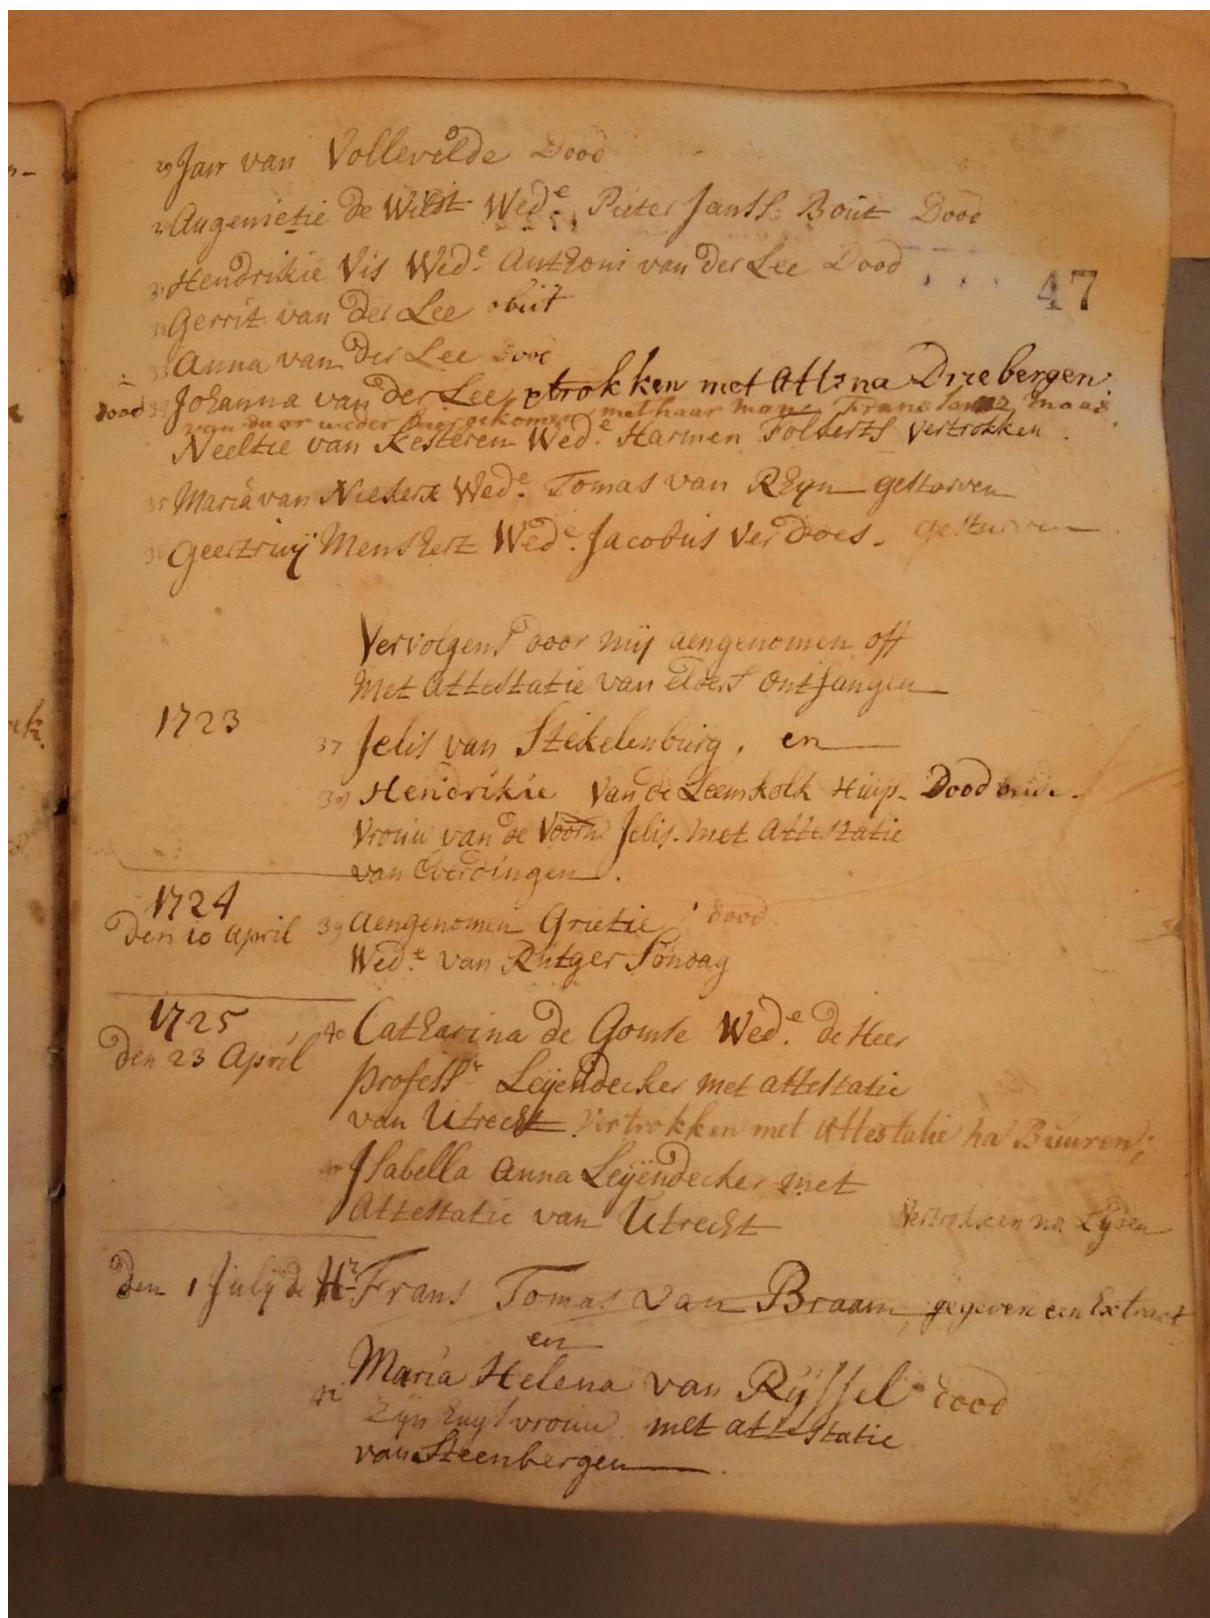 29 Jan van Vollevelde Dood
Augenietie de Wilst Wed.e Pieter Janss: Bout Dood
Hendrikie Vis Wed.e Anthoni van der Lee Dood
47
Gerrit van der Lee obiit
Anna van der Lee Dood
dood Johanna van der Lee vertrokken met Att: na Driebergen
van daar weder hier gekomen met haar man Frans
Neeltie van Kesteren Wed.e Harmen Folberts vertrokken
35 Maria van Niekerk Wed.e Tomas van Rhyn gestorven
36 Geertruij Menshert Wed.e Jacobus Verdoes. gesturven
Vervolgens door mij aengenomen off
Met Attestatie van elders ontfangen
1723
37 Jelis van Stekelenburg, en
38 Hendrikie van de Leemkolk Huijs- Dood beide.
vrouw van de Voorn Jelis. met Attestatie
van Everdingen.
1724
den 10 April 39 Aengenomen Grietie dood
Wed.e van Rutger Sondag
1725
den 23 April 40 Catharina de Gomse Wed.e de Heer
profess.r Leijendecker met attestatie
van Utrecht vertrokken met Attestatie na Buuren;
Isabella Anna Leijendecker met
Attestatie van Utrecht vertrokken na Lyden
den 1 Julij de Hr. Frans Tomas van Braam, gegeven een Extract
en
42 Maria Helena van Ryssel dood
Zijn huijsvrouw met attestatie
van Steenbergen.